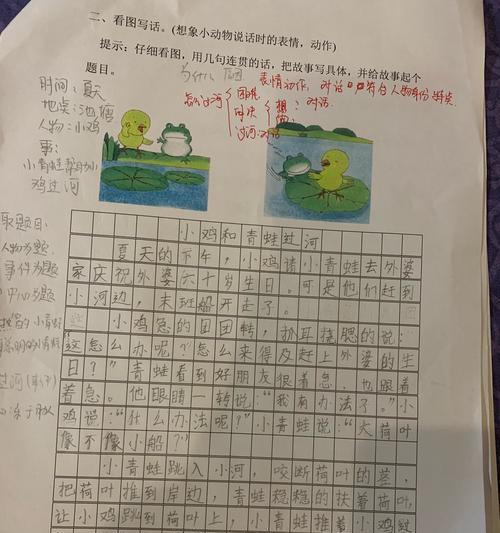 二、看图写话。(想象小动物说话时的表情,动作)
提示:仔细看图,用几句连贯的话,把故事写具体,并给故事起个
题目。
为什么
表情动作,对话
时间:夏天
地点:池塘
人物:小鸡
事:
小青蛙帮助小
鸡过河
怎么过河
困难
想:对话
过河:对话
取题目:
人物为题
事件为题
小鸡和青蛙过河
夏天的下午,小鸡请小青蛙去外婆
家庆祝外婆六十岁生日。可是他们赶到
小河边,末班船开走了。
小鸡急的团团转,抓耳挠腮的说:
“这怎么办呢?怎么来得及赶上外婆的生
日?”青蛙看到好朋友很着急,也跟着
着急。他眼睛一转说:“我有办法了。”小
鸡说:“什么办法呢?”小青蛙说:“大荷叶
像不像小船?”
小青蛙跳入小河,咬断荷叶的茎,
把荷叶推到岸边,青蛙稳稳的扶着荷叶,
让小鸡跳到荷叶上,小青蛙推着小鸡过